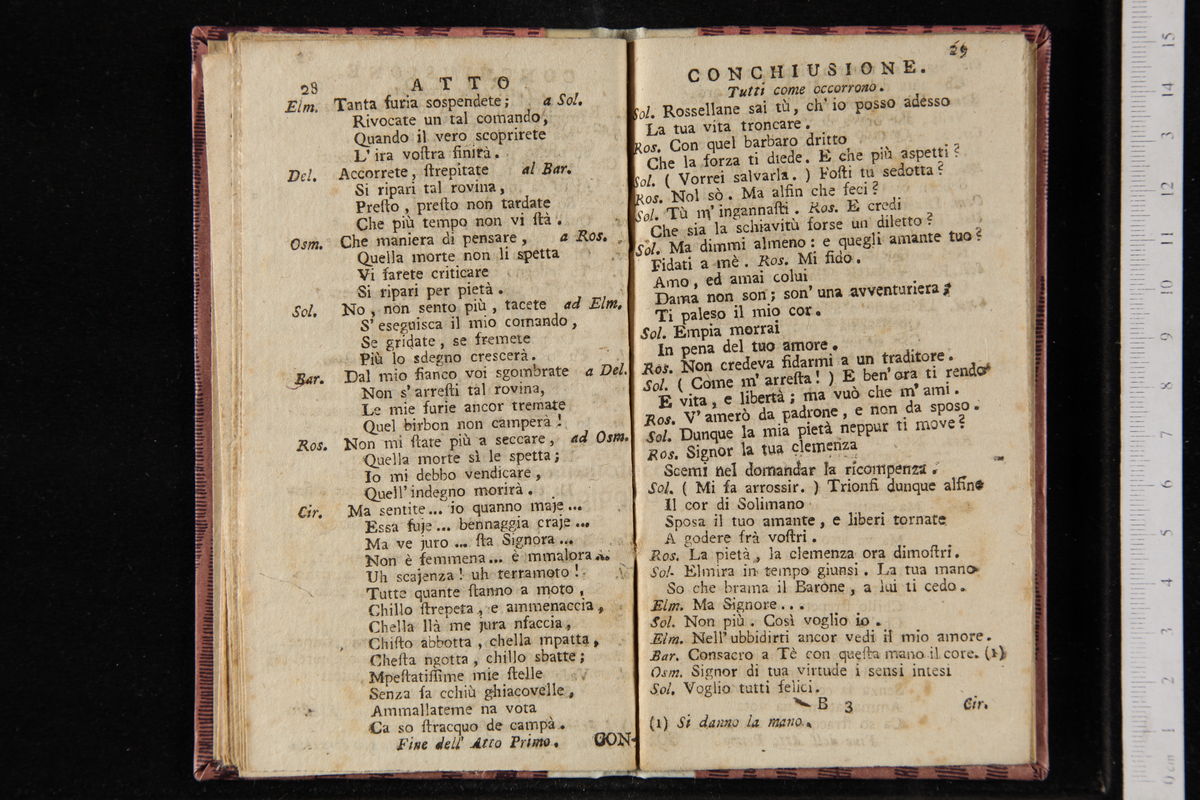 28
ATTO
Elm. Tanta furia sospendete; a Sol.
Rivocate un tal comando,
Quando il vero scoprirete
L' ira vostra finirà.
Del. Accorrete, strepitate al Bar.
Si ripari tal rovina,
Presto, presto non tardate
Che più tempo non vi stà.
Osm. Che maniera di pensare, a Ros.
Quella morte non li spetta
Vi farete criticare
Si ripari per pietà.
Sol. No, non sento più, tacete ad Elm.
S' eseguisca il mio comando,
Se gridate, se fremete
Più lo sdegno crescerà.
Bar. Dal mio fianco voi sgombrate a Del.
Non s' arresti tal rovina,
Le mie furie ancor tremate
Quel birbon non camperà!
Ros. Non mi state più a seccare, ad Osm.
Quella morte sì le spetta;
Io mi debbo vendicare,
Quell' indegno morirà.
Cir. Ma sentite... io quanno maje...
Essa fuje... bennaggia craje...
Ma ve juro... sta Signora...
Non è femmena... è mmalora...
Uh scajenza! uh terramoto!
Tutte quante stanno a moto,
Chillo strepeta, e ammenaccia,
Chella llà me jura nfaccia,
Chisto abbotta, chella mpatta,
Chesta ngotta, chillo sbatte;
Mpestatissime mie stelle
Senza fa cchiù ghiacovelle,
Ammallateme na vota
Ca so stracquo de campà.
Fine dell' Atto Primo. CON-
29
CONCHIUSIONE.
Tutti come occorrono.
Sol. Rossellane sai tù, ch' io posso adesso
La tua vita troncare.
Ros. Con quel barbaro dritto
Che la forza ti diede. E che più aspetti?
Sol. ( Vorrei salvarla. ) Fosti tu sedotta?
Ros. Nol sò. Ma alfin che feci?
Sol. Tù m' ingannasti. Ros. E credi
Che sia la schiavitù forse un diletto?
Sol. Ma dimmi almeno: e quegli amante tuo?
Fidati a mè. Ros. Mi fido.
Amo, ed amai colui
Dama non son; son' una avventuriera;
Ti paleso il mio cor.
Sol. Empia morrai
In pena del tuo amore.
Ros. Non credeva fidarmi a un traditore.
Sol. ( Come m' arresta! ) E ben' ora ti rendo
E vita, e libertà; ma vuò che m' ami.
Ros. V' amerò da padrone, e non da sposo.
Sol. Dunque la mia pietà neppur ti move?
Ros. Signor la tua clemenza
Scemi nel domandar la ricompenza.
Sol. ( Mi fa arrossir. ) Trionfi dunque alfine
Il cor di Solimano
Sposa il tuo amante, e liberi tornate
A godere frà vostri.
Ros. La pietà, la clemenza ora dimostri.
Sol. Elmira in tempo giunsi. La tua mano
So che brama il Barone, a lui ti cedo.
Elm. Ma Signore...
Sol. Non più. Così voglio io.
Elm. Nell' ubbidirti ancor vedi il mio amore.
Bar. Consacro a Tè con questa mano il core. (1)
Osm. Signor di tua virtude i sensi intesi
Sol. Voglio tutti felici.
B 3 Cir.
(1) Si danno la mano.